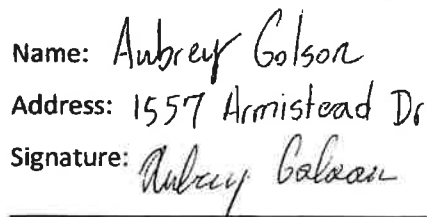 Name: Aubrey Golson
Address: 1557 Armistead Dr
Signature: Aubrey Golson